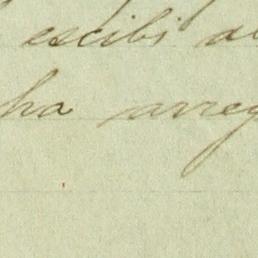 escibi
ha arreg